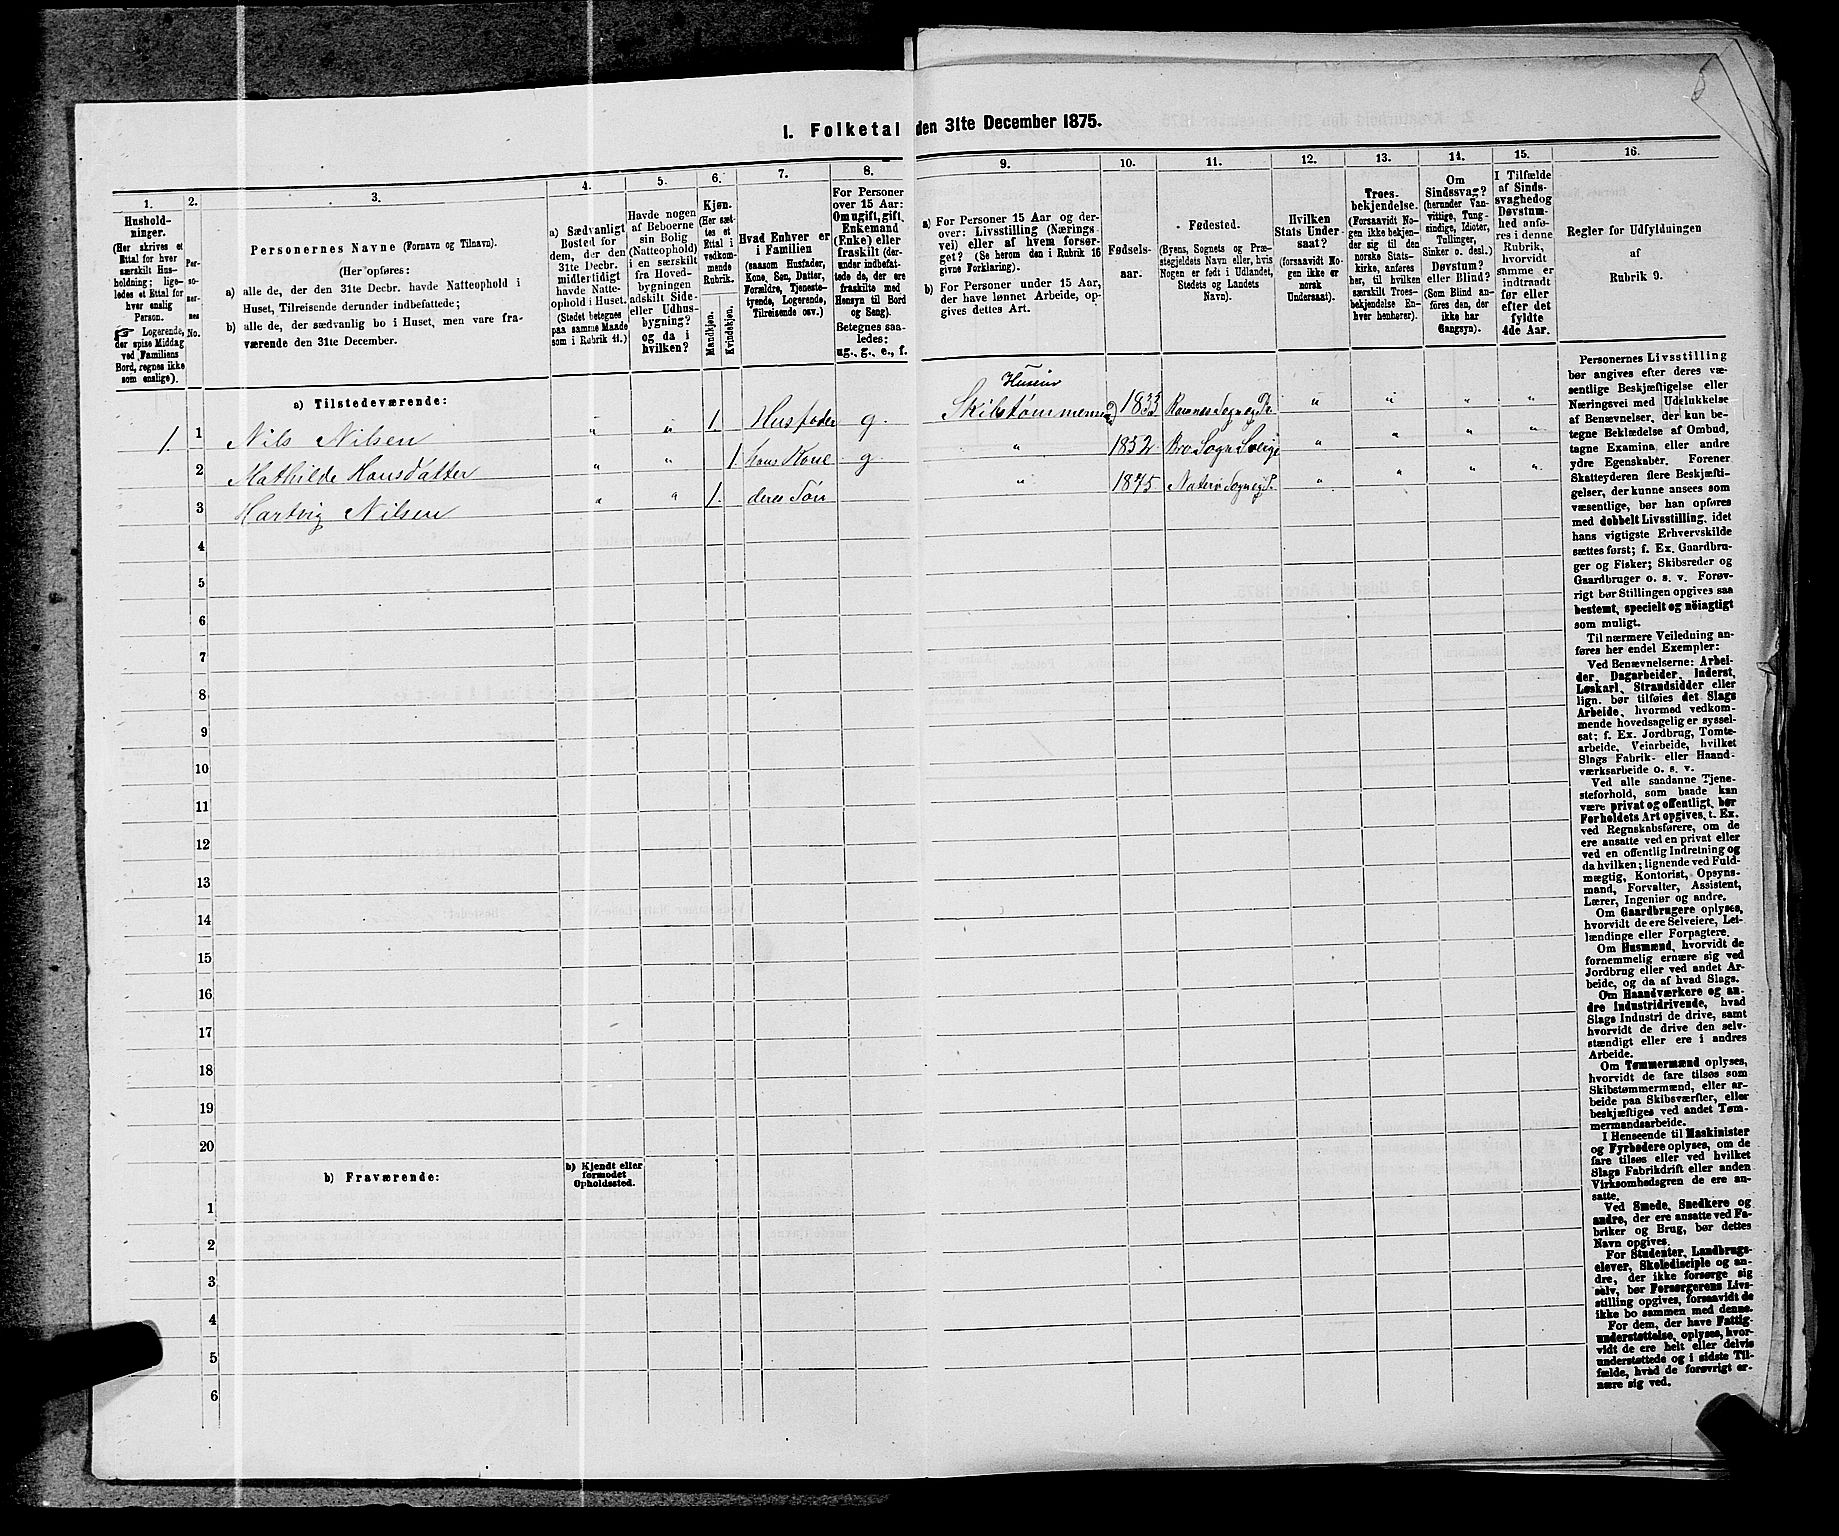 1. Folketal den 31te December 1875.
1.
Hushold-
ninger.
(Her skrives et
Ettal for hver
særskilt Hus-
holdning; lige-
ledes et Ettal for
hver enslig
Person.
Logerende,
der spise Middag
ved Familiens
Bord, regnes ikke
som enslige).
2.
Per-
so-
ner-
nes
No.
3.
Personernes Navne (Fornavn og Tilnavn).
(Her opføres:
a) alle de, der den 31te Decbr. havde Natteophold i
Huset, Tilreisende derunder indbefattede;
b) alle de, der sædvanlig bo i Huset, men vare fra-
værende den 31te December.
4.
a) Sædvanligt
Bosted for
dem, der den
31te Decbr.
midlertidigt
havde Natte-
ophold i Huset.
(Stedet betegnes
paa samme Maade
som i Rubrik 11.)
5.
Havde nogen
af Beboerne
sin Bolig
(Natteophold)
i en særskilt
fra Hoved-
bygningen
adskilt Side-
eller Udhus-
bygning?
og da i
hvilken?
6.
Kjøn.
(Her sæt-
tes et
Ettal i
vedkom-
mende
Rubrik.
Mandkjøn.
Kvindekjøn.
7.
Hvad Enhver er
i Familien
(saasom Husfader,
Kone, Søn, Datter,
Forældre, Tjeneste-
tyende, Logerende,
Tilreisende osv.)
8.
For Personer
over 15 Aar:
Om ugift, gift,
Enkemand
(Enke) eller
fraskilt (der-
under indbefat-
tede de, der ere
fraskilte med
Hensyn til Bord
og Seng).
Betegnes saa-
ledes:
ug., g., e., f.
9.
a) For Personer 15 Aar og der-
over: Livsstilling (Nærings-
vei) eller af hvem forsør-
get? (Se herom den i Rubrik 16
givne Forklaring).
b) For Personer under 15 Aar,
der have lønnet Arbeide, op-
gives dettes Art.
10.
Fødsels-
aar.
11.
Fødested.
(Byens, Sognets og Præ-
stegjeldets Navn eller, hvis
Nogen er født i Udlandet,
Stedets og Landets
Navn).
12.
Hvilken
Stats Under-
saat?
(forsaavidt No-
gen ikke er
norsk
Undersaat).
13.
Troes-
bekjendelse.
(Forsaavidt No-
gen ikke bekjen-
der sig til den
norske Stats-
kirke, anføres
her, til hvilken
særskilt Troes-
bekjendelse En-
hver henhører).
14.
Om
Sindssvag?
(herunder Van-
vittige, Tung-
sindige, Idioter,
Tullinger,
Sinker o. desl.)
Døvstum?
eller Blind?
(Som Blind an-
føres den, der
ikke har
Gangsyn).
15.
I Tilfælde
af Sinds-
svaghed og
Døvstum-
hed anfø-
res i denne
Rubrik,
hvorvidt
samme er
indtraadt
før eller
efter det
fyldte
4de Aar.
16.
Regler for Udfyldningen
af
Rubrik 9.
a) Tilstedeværende:
Huseier
1. 1 Nils Nilsen " " 1. Husfader g. Skibstømmermand 1833 " " " "
2 Mathilde Hansdatter " " 1. hans Kone g. " 1852. Bro Sogn Sverige " " " "
3 Hartvig Nilsen " " 1. deres Søn " 1875. " " " "
4
5
6
7
8
9
10
11
12
13
14
15
16
17
18
19
20
b) Fraværende:
b) Kjendt eller
formodet
Opholdssted.
1
2
3
4
5
6
Personernes Livsstilling
bør angives efter deres væ-
sentlige Beskjæftigelse eller
Næringsvei med Udelukkelse
af Benævnelser, der kun be-
tegne Beklædelse af Ombud,
tagne Examina eller andre
ydre Egenskaber. Forener
Skatteyderen flere Beskjæfti-
gelser, der kunne ansees som
væsentlige, bør han opføres
med dobbelt Livsstilling, idet
hans vigtigste Erhvervskilde
sættes først; f. Ex. Gaardbru-
ger og Fisker; Skibsreder og
Gaardbruger o. s. v. Forøv-
rigt bør Stillingen opgives saa
bestemt, specielt og nöiagtigt
som muligt.
Til nærmere Veiledning an-
føres her endel Exempler:
Ved Benævnelserne: Arbei-
der, Dagarbeider, Inderst,
Løskarl, Strandsidder eller
lign. bør tilføies det Slags
Arbeide, hvormed vedkom-
mende hovedsagelig er syssel-
sat; f. Ex. Jordbrug, Tomte-
arbeide, Veiarbeide, hvilket
Slags Fabrik- eller Haand-
værksarbeide o. s. v.
Ved alle saadanne Tjene-
steforhold, som baade kan
være privat og offentligt, bør
Forholdets Art opgives, t. Ex.
ved Regnskabsførere, om de
ere ansatte ved en privat eller
ved en offentlig Indretning og
da hvilken; lignende ved Fuld-
mægtig, Kontorist, Opsyns-
mand, Forvalter, Assistent,
Lærer, Ingeniør og andre.
Om Gaardbrugere oplyses,
hvorvidt de ere Selveiere, Lei-
lændinge eller Forpagtere.
Om Husmænd, hvorvidt de
fornemmelig ernære sig ved
Jordbrug eller ved andet Ar-
beide, og da af hvad Slags.
Om Haandværkere og an-
dre Industridrivende, hvad
Slags Industri de drive, samt
hvorvidt de drive den selv-
stændigt eller ere i andres
Arbeide.
Om Tømmermænd oplyses,
hvorvidt de fare tilsøs som
Skibstømmermænd, eller ar-
beide paa Skibsværfter, eller
beskjæftiges ved andet Tøm-
mermandsarbeide.
I Henseende til Maskinister
og Fyrbødere oplyses, om de
fare tilsøs eller ved hvilket
Slags Fabrikdrift eller anden
Virksomhedsgren de ere an-
satte.
Ved Smede, Snedkere og
andre, der ere ansatte ved Fa-
briker og Brug, bør dettes
Navn opgives.
For Studenter, Landbrugs-
elever, Skoledisciple og an-
dre, der ikke forsørge sig
selv, bør Forsørgerens Livs-
stilling opgives, forsaavidt de
ikke bo sammen med denne.
For dem, der have Fattig-
understøttelse, oplyses, hvor-
vidt de ere helt eller delvis
understøttede og i sidste Til-
fælde, hvad de forøvrigt er-
nære sig ved.